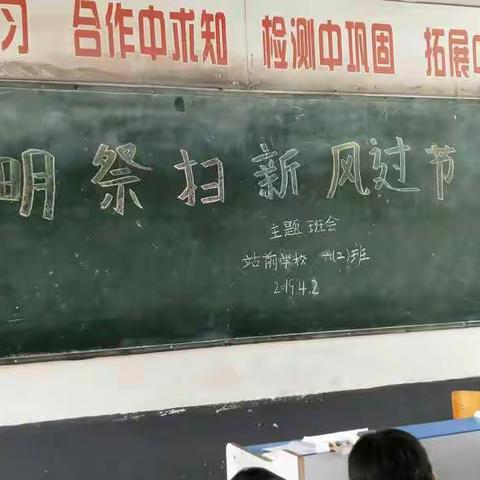 习 合作中求知 检测中巩固 拓展中
明祭扫新风过节
主题班会
站前学校 六(2)班
2019.4.2